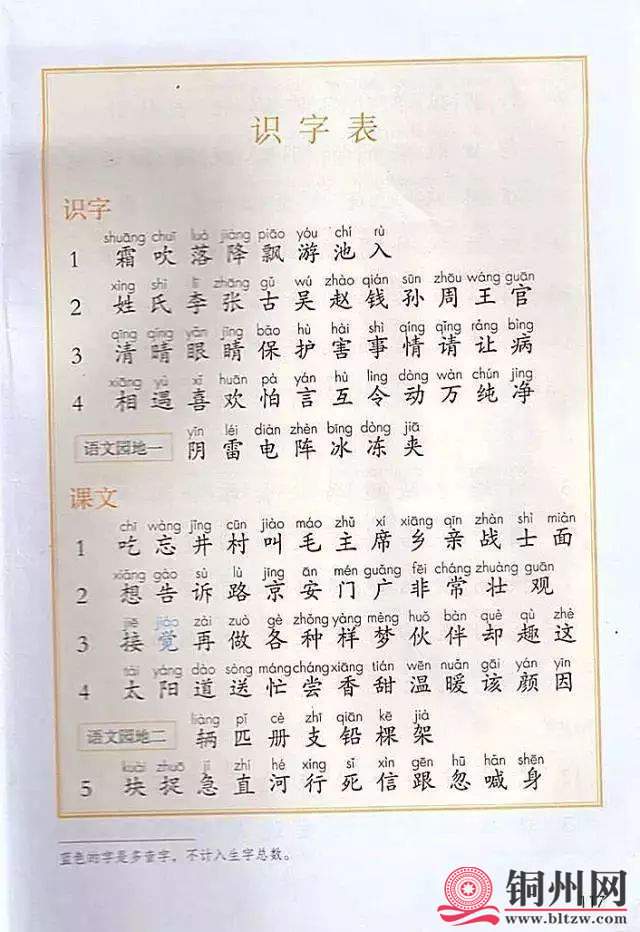 识字表
识字
shuāng chuī luò jiàng piāo yóu chí rù
1 霜 吹 落 降 飘 游 池 入
xìng shì lǐ zhāng gǔ wú zhào qián sūn zhōu wáng guān
2 姓 氏 李 张 古 吴 赵 钱 孙 周 王 官
qīng qíng yǎn jīng bǎo hù hài shì qíng qǐng ràng bìng
3 清 晴 眼 睛 保 护 害 事 情 请 让 病
xiāng yù xǐ huān pà yán hù lìng dòng wàn chún jìng
4 相 遇 喜 欢 怕 言 互 令 动 万 纯 净
yīn léi diàn zhèn bīng dòng jiā
语文园地一 阴 雷 电 阵 冰 冻 夹
课文
chī wàng jǐng cūn jiào máo zhǔ xí xiāng qīn zhàn shì miàn
1 吃 忘 井 村 叫 毛 主 席 乡 亲 战 士 面
xiǎng gào sù lù jīng ān mén guǎng fēi cháng zhuàng guān
2 想 告 诉 路 京 安 门 广 非 常 壮 观
jiē jiào zài zuò gè zhǒng yàng mèng huǒ bàn què qù zhè
3 接 觉 再 做 各 种 样 梦 伙 伴 却 趣 这
tài yáng dào sòng máng cháng xiāng tián wēn nuǎn gāi yán yīn
4 太 阳 道 送 忙 尝 香 甜 温 暖 该 颜 因
liàng pǐ cè zhī qiān kē jià
语文园地二 辆 匹 册 支 铅 棵 架
kuài zhuō jí zhí hé xíng sǐ xìn gēn hū hǎn shēn
5 块 捉 急 直 河 行 死 信 跟 忽 喊 身
蓝色的字是多音字，不计入生字总数。
117
铜州网
www.bltzw.com